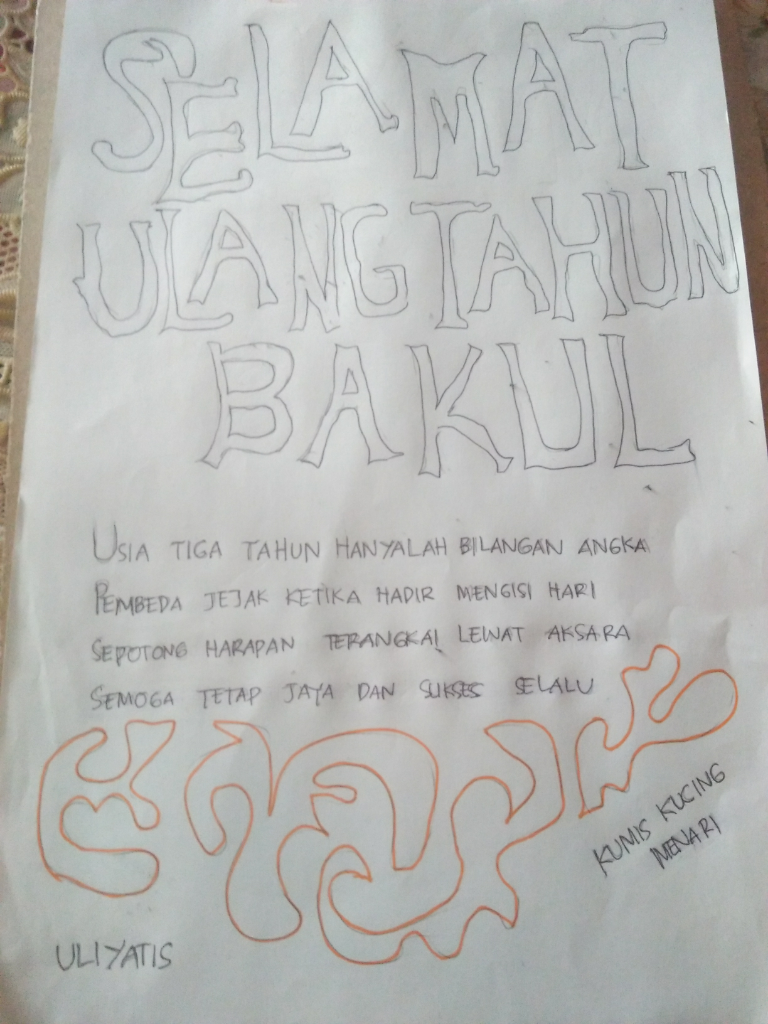 SELAMAT
ULANG TAHUN
BAKUL
USIA TIGA TAHUN HANYALAH BILANGAN ANGKA
PEMBEDA JEJAK KETIKA HADIR MENGISI HARI
SEPOTONG HARAPAN TERANGKAI LEWAT AKSARA
SEMOGA TETAP JAYA DAN SUKSES SELALU
KUMIS KUCING
MENARI
ULIYATIS